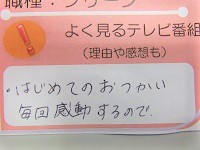 職種:フリー
よく見るテレビ番組
(理由や感想も)
・はじめてのおつかい
毎回感動するので